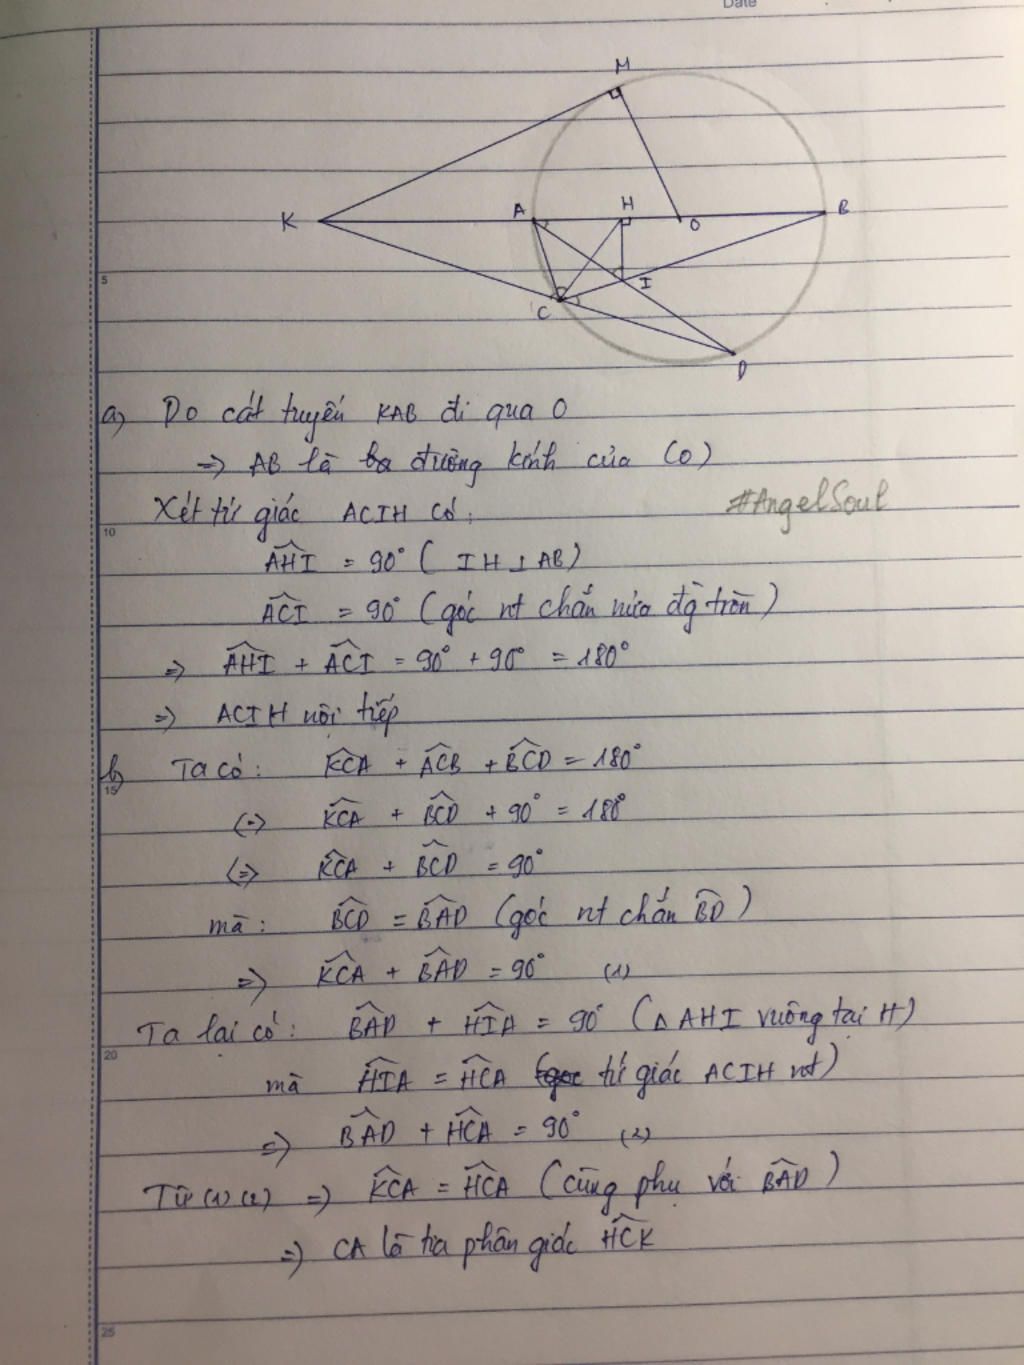 Date
M
K
A
H
O
B
I
C
D
5
a) Do cát tuyến KAB đi qua O
=> AB là đường kính của (O)
Xét tứ giác ACIH có:
#AngelSoul
10
AHI = 90° ( IH ⊥ AB)
ACI = 90° (góc nt chắn nửa đg tròn)
=> AHI + ACI = 90° + 90° = 180°
=> ACIH nội tiếp
b) Ta có: KCA + ACB + BCD = 180°
15
(=) KCA + BCD + 90° = 180°
(=) KCA + BCD = 90°
mà: BCD = BAD (góc nt chắn BD)
=> KCA + BAD = 90° (1)
Ta lại có: BAD + HIA = 90° (△ AHI vuông tại H)
20
mà HIA = HCA (tứ giác ACIH nt)
=) BAD + HCA = 90° (2)
Từ (1) (2) => KCA = HCA (cùng phụ với BAD)
=) CA là tia phân giác HCK
25